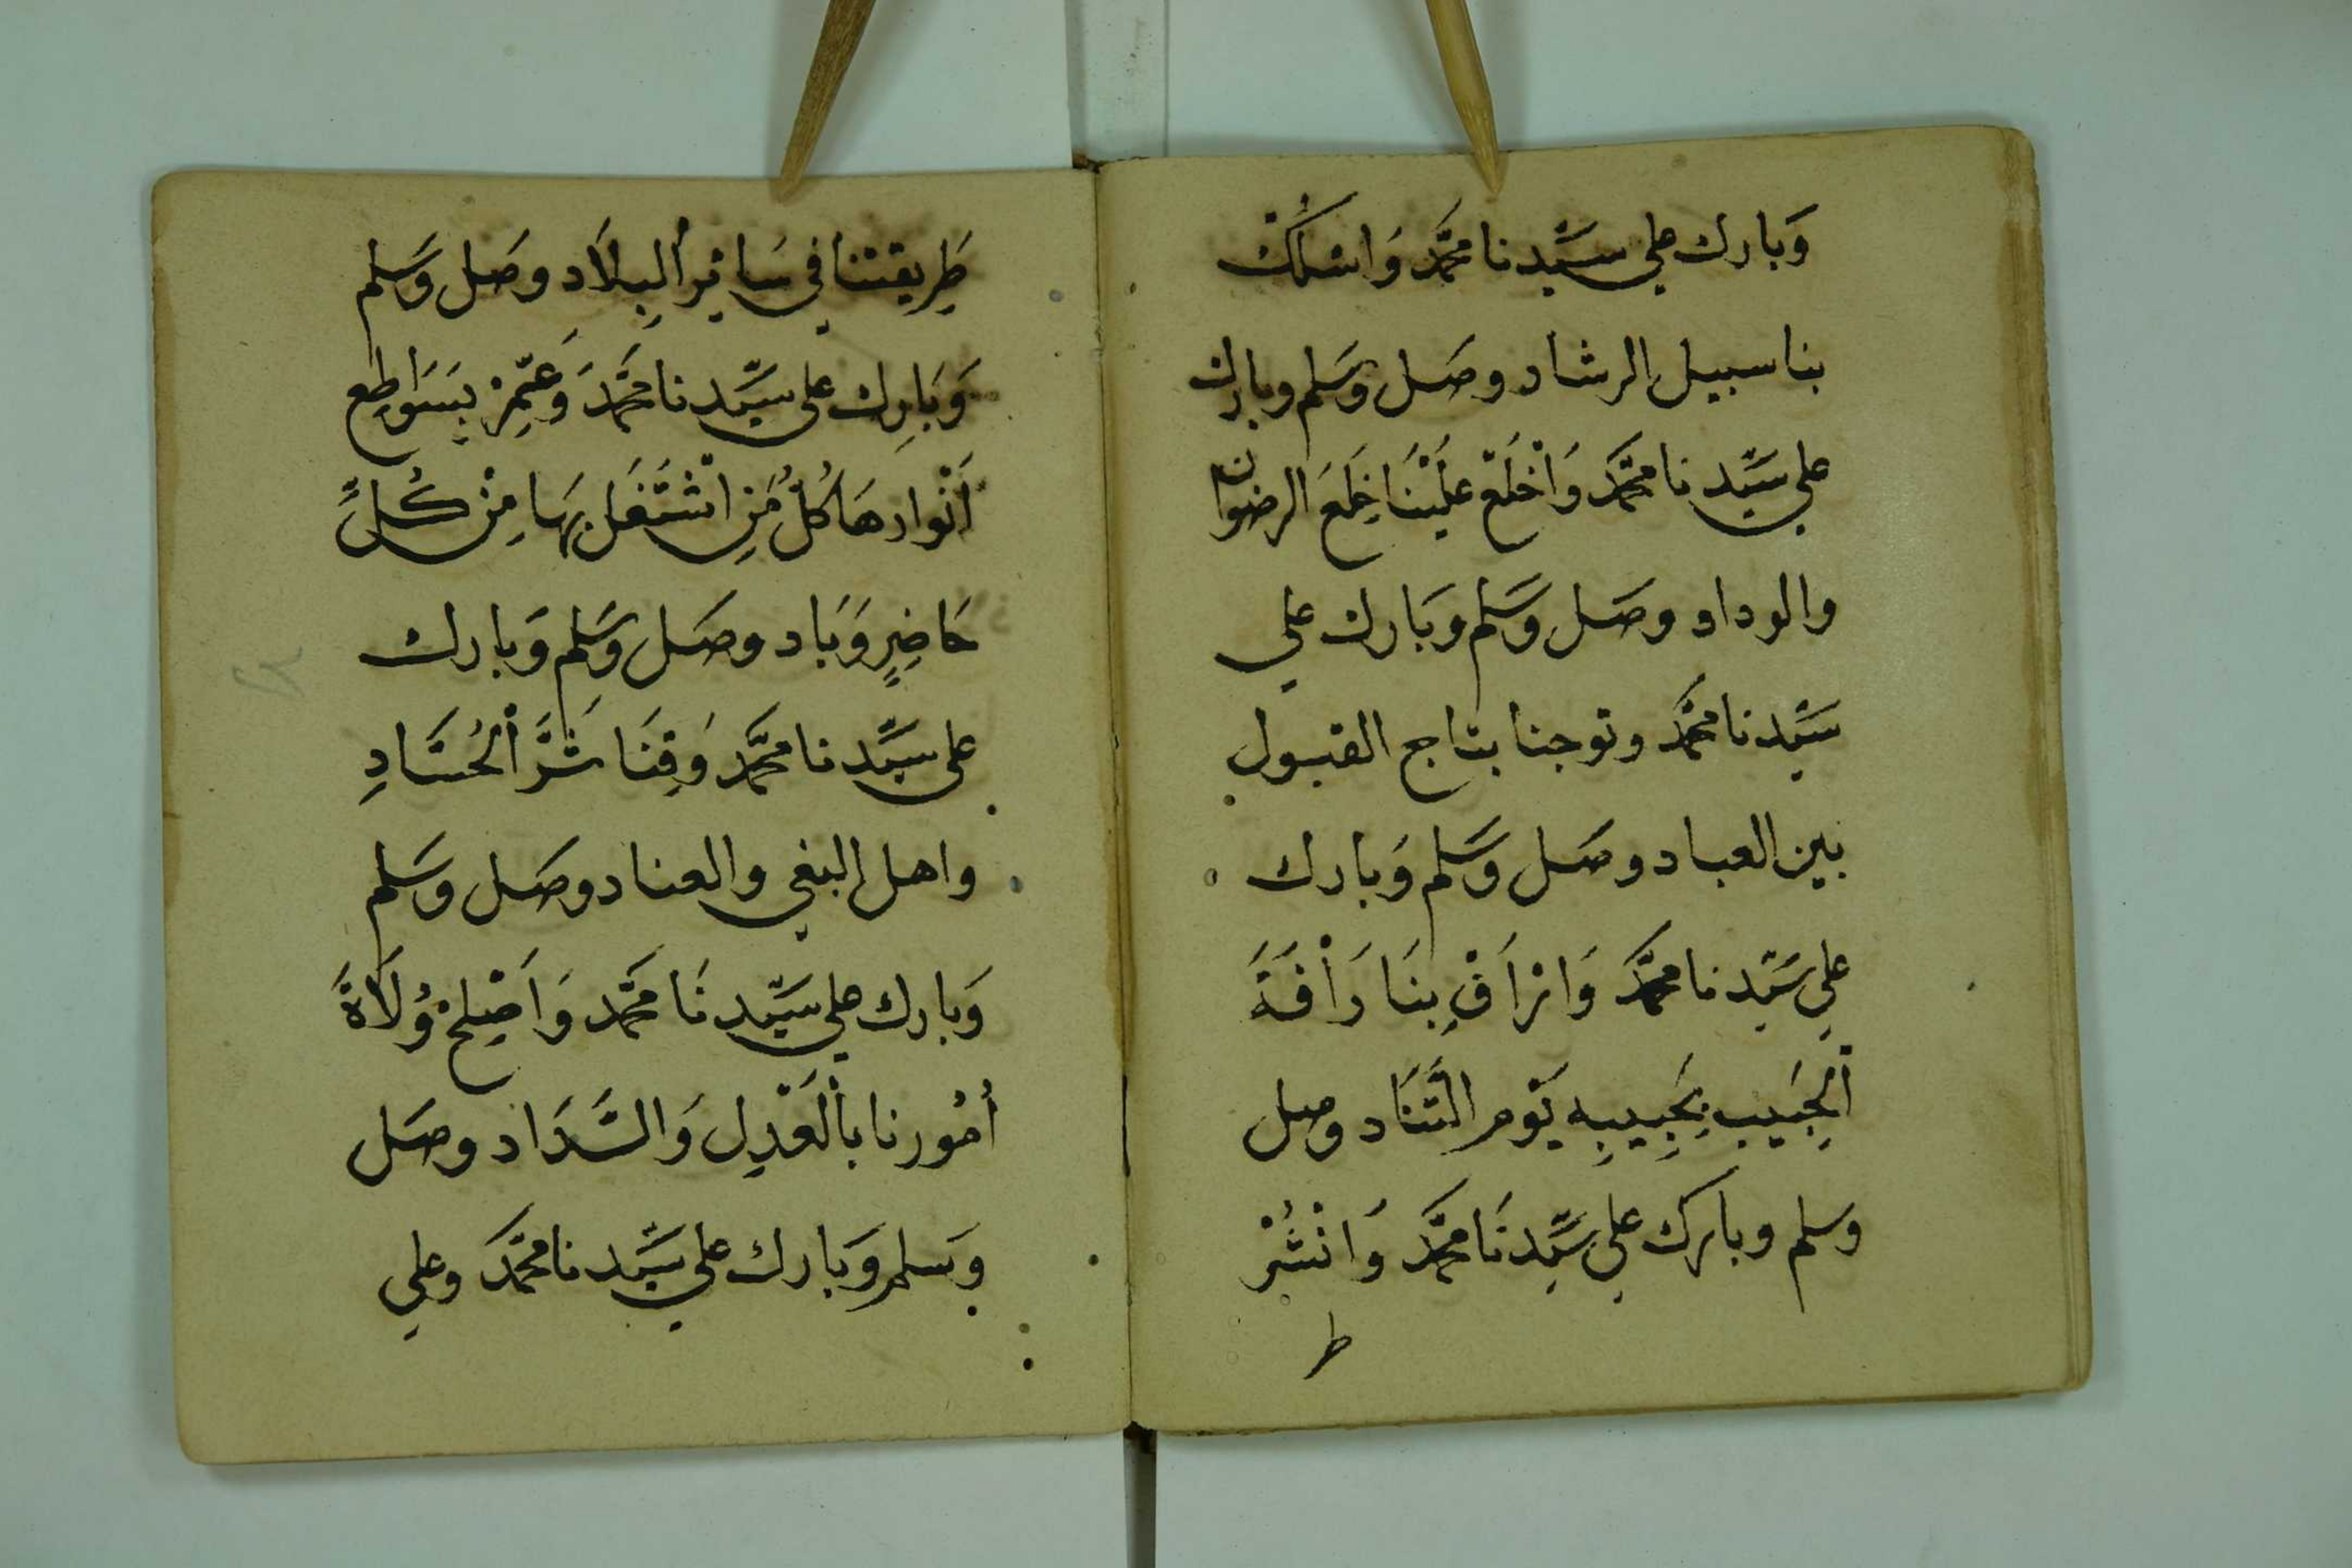 وَبارك علي سيِّدنا محمَّد وَاسْلُكْ
بنا سبيل الرشاد وصَل وَسَلم وبارك
علي سَيِّدنا محمَّد وَاخْلَعْ عَلَيْنَا خِلَعَ الرضوان
والوداد وصَل وَسَلم وبَارك علي
سَيِّدنا محمَّد وتوجنا بتاج القبول
بين العباد وصَل وَسَلم وَبارك
علي سَيِّدنا محمَّد وَارْأَفْ بِنَا رَأْفَةَ
اْلحَبِيب بِحَبِيبِهِ يَوْم التَّنَاد وصل
وسلم وبارك علي سَيِّدنَا محمَّد وَانْشُرْ
ط
طَرِيقتنا في سَائِر اْلبِلَادِ وصَل وَسَلم
وَبَارِك على سَيِّدنا محَمَّد وَعَمِّرْ بِسَوَاطِع
أَنْوارهَا كُلَّ مَنِ اشْتَغَل بِهَا مِنْ كُلِّ
حَاضِرٍ وَبَاد وصَل وَسَلم وَبارك
على سيِّدنا محمَّد وَقِنَا شَرَّ اْلحُسَّادِ
واهل البغي والعناد وصَل وسَلم
وَبارك علي سَيِّدنَا محَمَّد وَاَصْلِحْ وُلَاةَ
أُمُورنا بالْعَدْلِ وَالسَّدَاد وصَل
وسَلم وَبَارك علي سَيِّدنا محمَّد وعلي